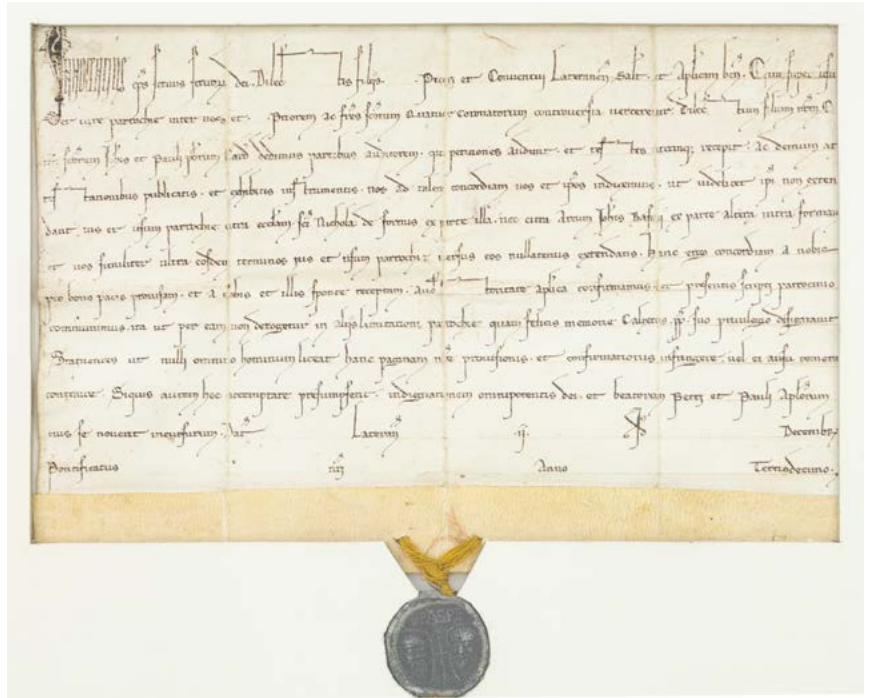 Innocentius eps servus servorum dei. Dilectis filiis. Priori et Conventui Lateranen. Salt. et Aplicam ben. Cum super
iure parrochie inter vos et. Priorem ac fres scorum Quatuor Coronatorum controversia verteretur. Dilectum filium nrm
scorum Johis et Pauli pbrum Card dedimus partibus auditorem. qui petitiones audivit. et testes utrinque recepit. ac demum at
testationibus publicatis. et exhibitis instrumentis. nos ad talem concordiam vos et ipos induximus. ut videlicet ipi non exten
dant ius et usum parrochie ultra ecclam sci Nicholai de formis ex parte illa. nec citra Arcum Johis Basilii ex parte altera intra formam
et vos similiter ultra eosdem terminos ius et usum parrochie versus eos nullatenus extendatis. Hanc ergo concordiam a nobis
pro bono pacis provisam. et a vobis et illis sponte receptam. auctoritate aplica confirmamus. et presentis scripti patrocinio
communimus. ita ut per eam non derogetur in aliis limitationi parrochie quam felicis memorie Calixtus. pp. suo privilegio designavit
Statuentes ut nulli omnino hominum liceat hanc paginam nre provisionis. et confirmationis infringere. vel ei ausu temera
contraire. Siquis autem hoc attemptare presumpserit. indignationem omnipotentis dei. et beatorum Petri et Pauli Aplorum
eius se noverit incursurum. Dat Lateran ij Decembr.
Pontificatus nri Anno Tertiodecimo.